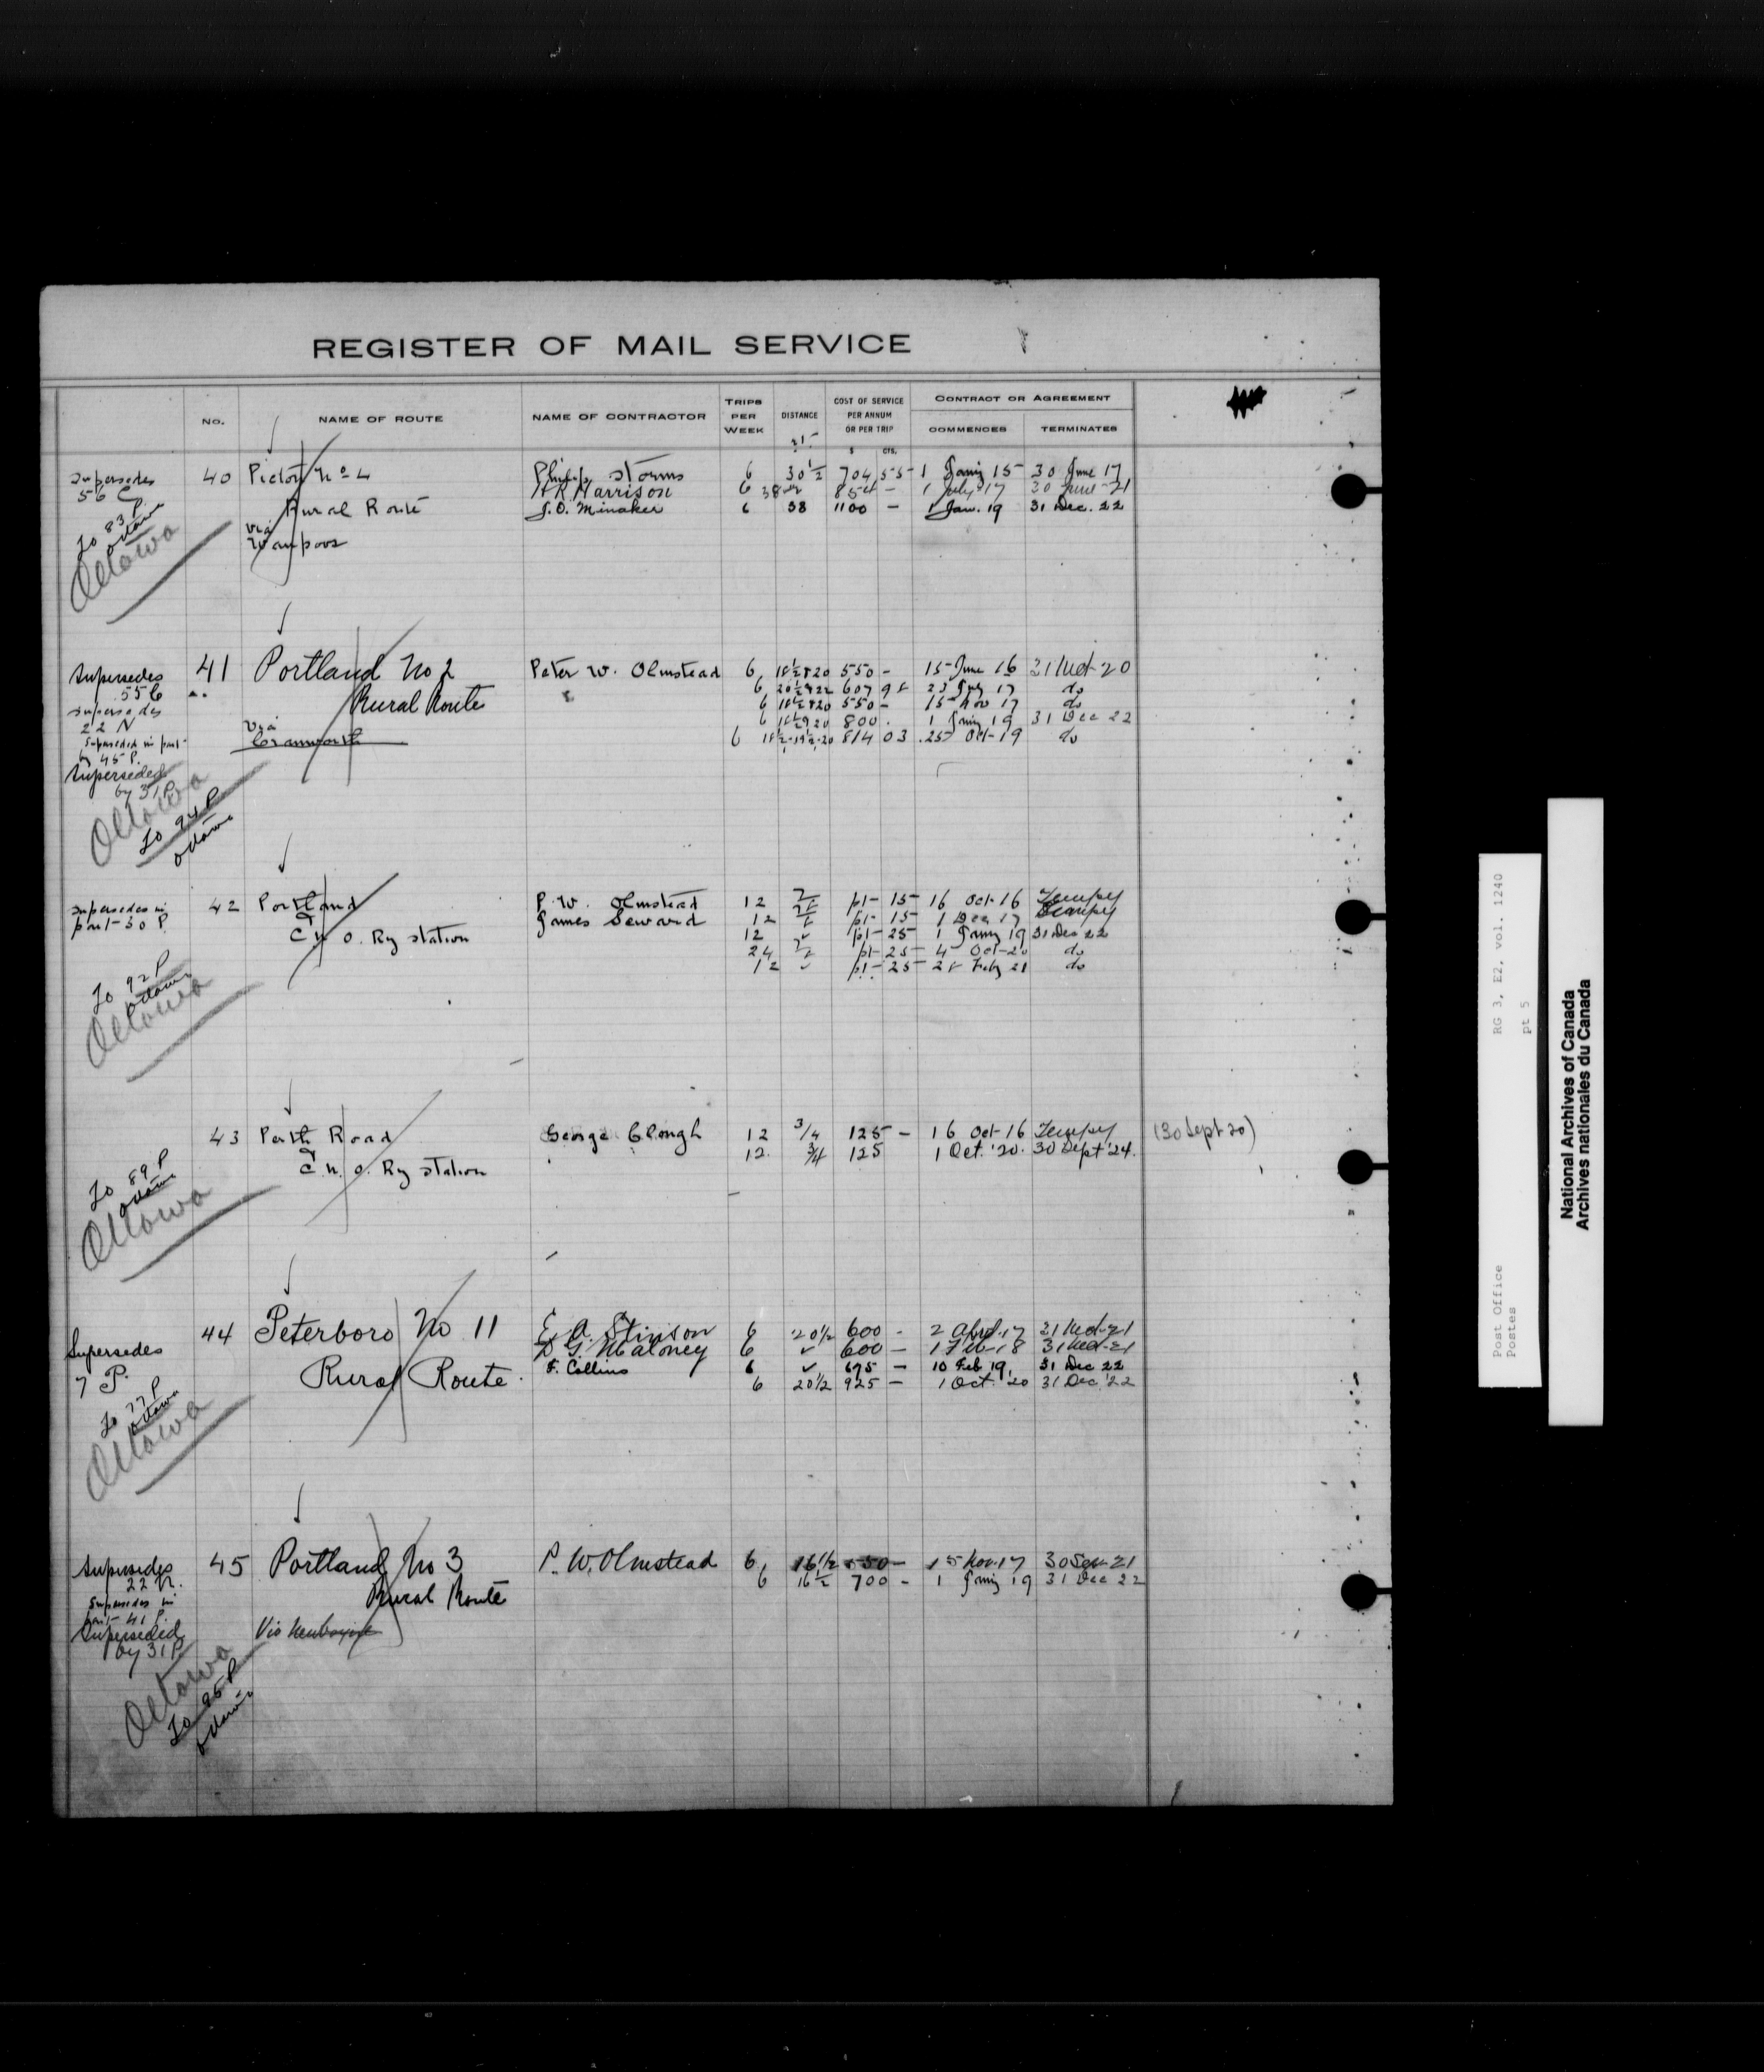 REGISTER OF MAIL SERVICE
No. NAME OF ROUTE NAME OF CONTRACTOR TRIPS PER WEEK DISTANCE COST OF SERVICE PER ANNUM OR PER TRIP $ CTS. CONTRACT OR AGREEMENT COMMENCES TERMINATES
Supersedes 56 C
To 83 P Ottawa
Ottawa
40 Picton No 4 Philip Storms 6 30 1/2 704 55 1 Jany 15 30 June 17
H R Harrison 6 38 854 - 1 July 17 30 June 21
Rural Route J.O. Minaker 6 38 1100 - 1 Jan. 19 31 Dec. 22
via
Waupoos
Supersedes
supersedes
22 N
Superseded in part
by 45 P.
Superseded
by 31 P
Ottawa
To 94 P
Ottawa
41 Portland No 2 Peter W. Olmstead 6 18 1/2 & 20 550 - 15 June 16 31 Mch 20
Rural Route 6 20 1/2 & 22 607 98 23 July 17 do
6 18 1/2 & 20 550 - 15 Nov 17 do
via 6 18 1/2 & 20 800 . 1 Jany 19 31 Dec 22
Cranworth 6 814 03 25 Oct 19 do
supersedes in
part 30 P
To 92 P
Ottawa
Ottawa
42 Portland P. W. Olmstead 12 p1- 15 16 Oct 16 Tempy
& James Seward 12 p1- 15 1 Dec 17 Tempy
C N O. Ry station 12 p1- 25 1 Jany 19 31 Dec 22
24 p1- 25 4 Oct 20 do
12 p1- 25 28 Feby 21 do
To 89 P
Ottawa
Ottawa
43 Perth Road George Clough 12 3/4 125 - 16 Oct 16 Tempy (30 Sept 20)
& 12. 3/4 125 1 Oct. '20. 30 Sept '24.
C. N. O. Ry station
Supersedes
7 P.
To 77 P
Ottawa
Ottawa
44 Peterboro No 11 E. A. Stinson 6 20 1/2 600 - 2 April 17 31 Mch 21
D G. Maloney 6 ✓ 600 - 1 Feb 18 31 Mch 21
Rural Route. F. Collins 6 ✓ 695 - 10 Feb 19. 31 Dec 22
6 20 1/2 925 - 1 Oct. '20 31 Dec '22
Supersedes
22 N.
Supersedes in
part 41 P.
Superseded
by 31 P.
Ottawa
To 95 P
Ottawa
45 Portland No 3 P. W. Olmstead 6, 16 1/2 550 - 15 Nov. 17 30 Sep 21
Rural Route 6 16 1/2 700 - 1 Jany 19 31 Dec 22
Via Newboyne
RG 3, E2, vol. 1240
pt 5
Post Office
Postes
National Archives of Canada
Archives nationales du Canada